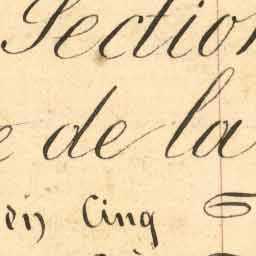 Section
e de la
en Cinq